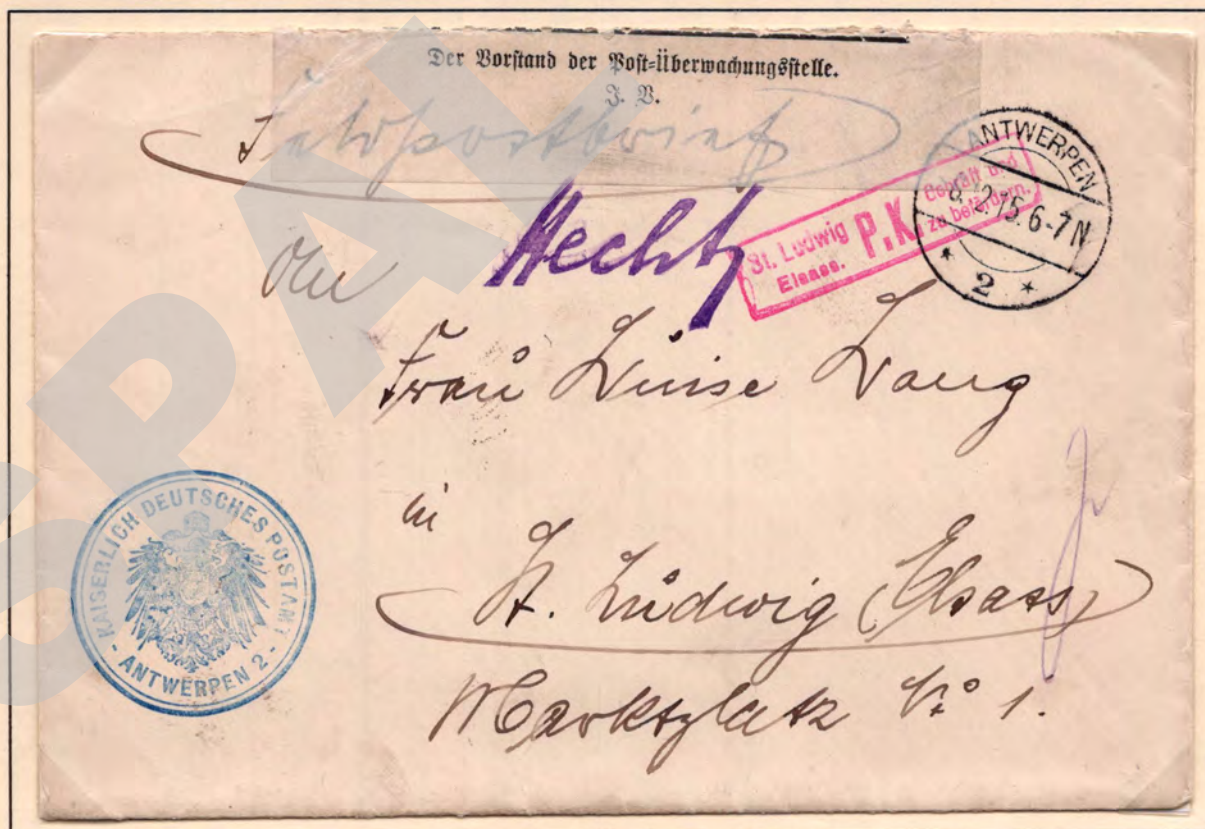 Der Vorstand der Post-Überwachungsstelle.
J. V.
Feldpostbrief
ANTWERPEN
6-7N
* 2 *
St. Ludwig
Elsass.
P.K.
Geprüft und
zu befördern.
An
Frau Luise Lang
in
St. Ludwig (Elsass)
Marktplatz No 1.
KAISERLICH DEUTSCHES POSTAMT
- ANTWERPEN 2 -
SPAY